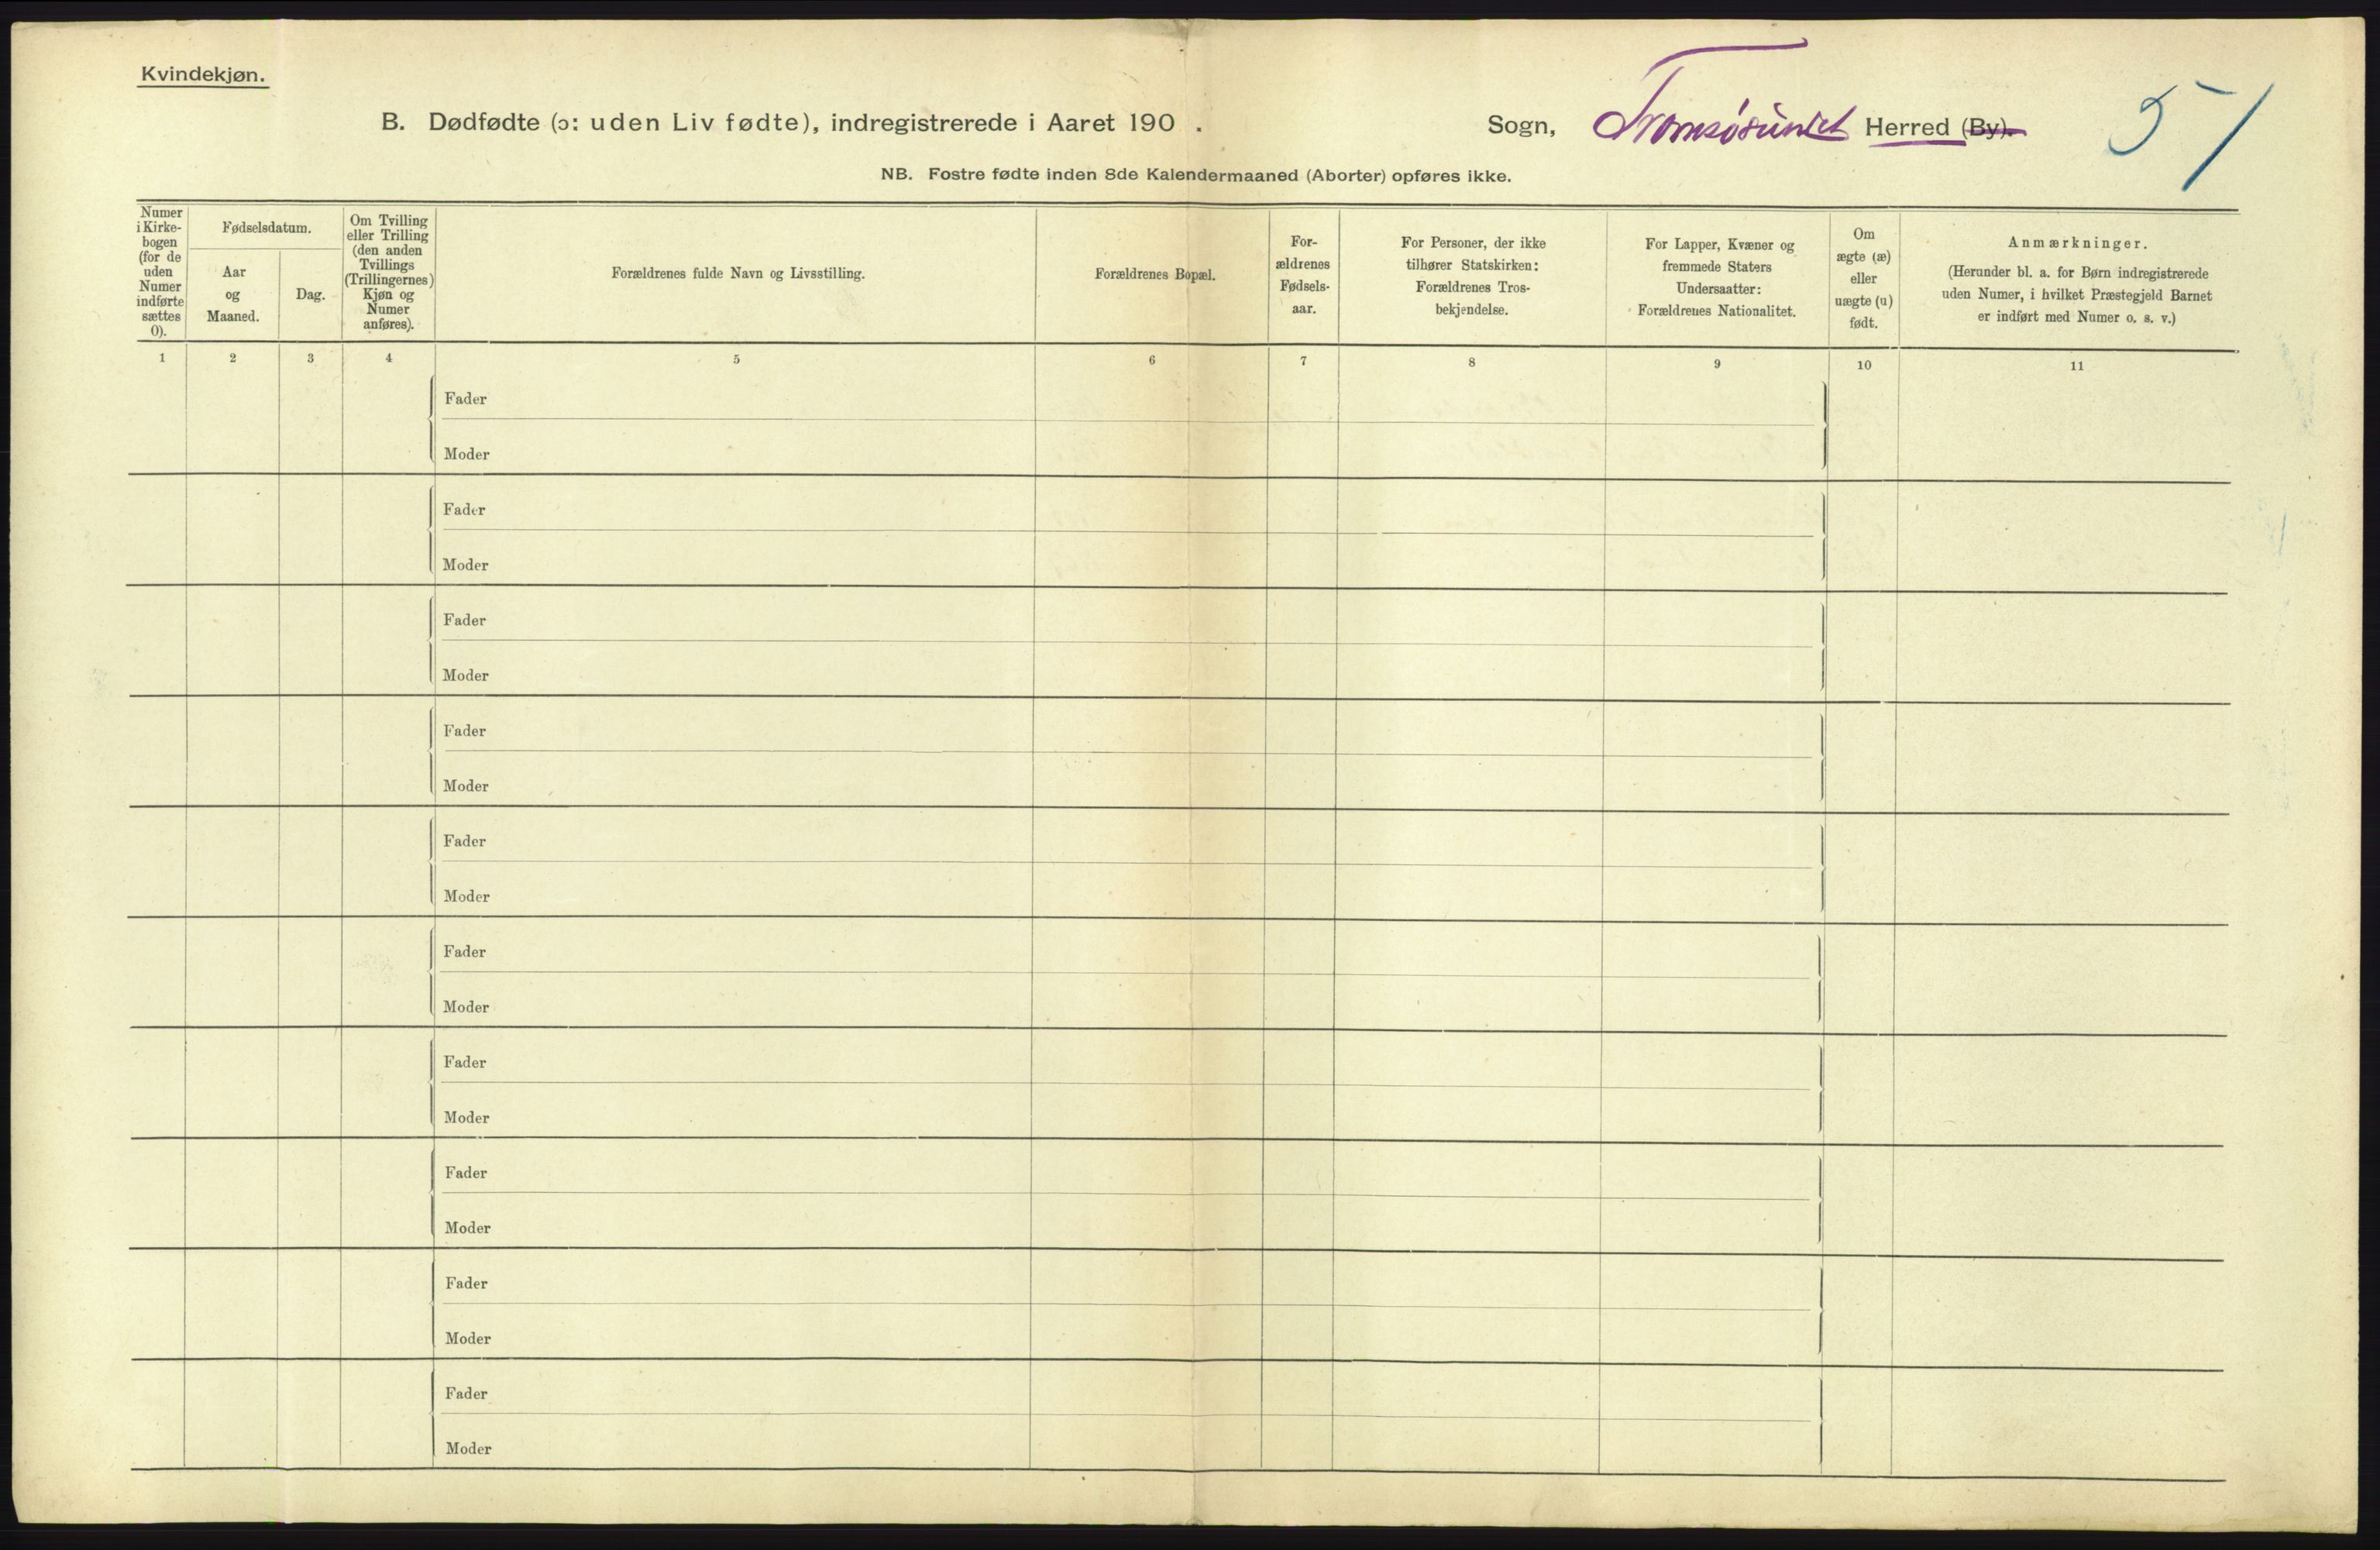 Kvindekjøn.
B. Dødfødte (ɔ: uden Liv fødte), indregistrerede i Aaret 190 . Sogn, Tromsøsundet Herred (By). 51
NB. Fostre fødte inden 8de Kalendermaaned (Aborter) opføres ikke.
Numer
i Kirke-
bogen
(for de
uden
Numer
indførte
sættes
0).
Fødselsdatum.
Aar
og
Maaned.
Dag.
Om Tvilling
eller Trilling
(den anden
Tvillings
(Trillingernes)
Kjøn og
Numer
anføres).
Forældrenes fulde Navn og Livsstilling.
Forældrenes Bopæl.
For-
ældrenes
Fødsels-
aar.
For Personer, der ikke
tilhører Statskirken:
Forældrenes Tros-
bekjendelse.
For Lapper, Kvæner og
fremmede Staters
Undersaatter:
Forældrenes Nationalitet.
Om
ægte (æ)
eller
uægte (u)
født.
Anmærkninger.
(Herunder bl. a. for Børn indregistrerede
uden Numer, i hvilket Præstegjeld Barnet
er indført med Numer o. s. v.)
1 2 3 4 5 6 7 8 9 10 11
Fader
Moder
Fader
Moder
Fader
Moder
Fader
Moder
Fader
Moder
Fader
Moder
Fader
Moder
Fader
Moder
Fader
Moder
Fader
Moder